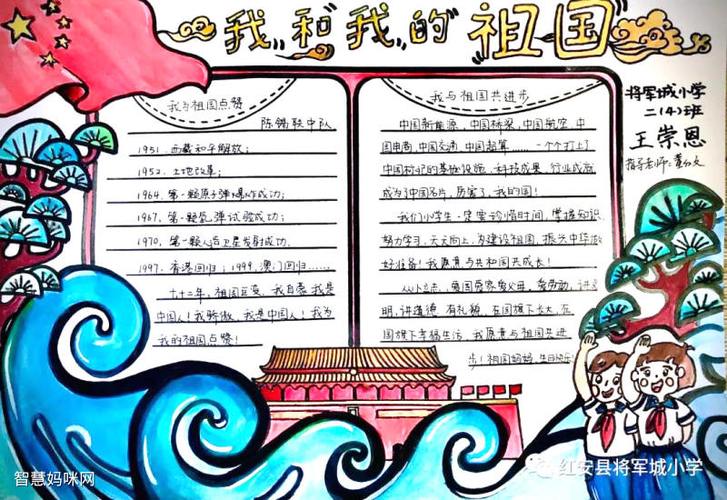 我和我的祖国
将军城小学
二(4)班
王崇恩
指导老师:
我与祖国点赞
陈锡联中队
1951.西藏和平解放；
1952.土地改革；
1964.第一颗原子弹爆炸成功；
1967.第一颗氢弹试验成功；
1970.第一颗人造卫星发射成功.
1997.香港回归；1999,澳门回归……
七十二年，祖国巨变，我自豪我是
中国人！我骄傲，我是中国人！我为
我的祖国点赞！
我与祖国共进步
中国新能源，中国桥梁，中国航空，中
国电商，中国交通，中国超算……一个个打上
中国标记的基础设施、科技成果、行业成就
成为了中国名片，厉害了，我的国！
我们小学生一定要珍惜时间，掌握知识
努力学习，天天向上，为建设祖国，振兴中华做
好准备！我愿意与共和国共成长！
从小立志，爱国爱家爱父母，爱劳动，讲文
明，讲道德，有礼貌，在国旗下长大，在
国旗下幸福生活，我愿意与祖国共进
步！祖国妈妈，生日快乐
智慧妈咪网
红安县将军城小学